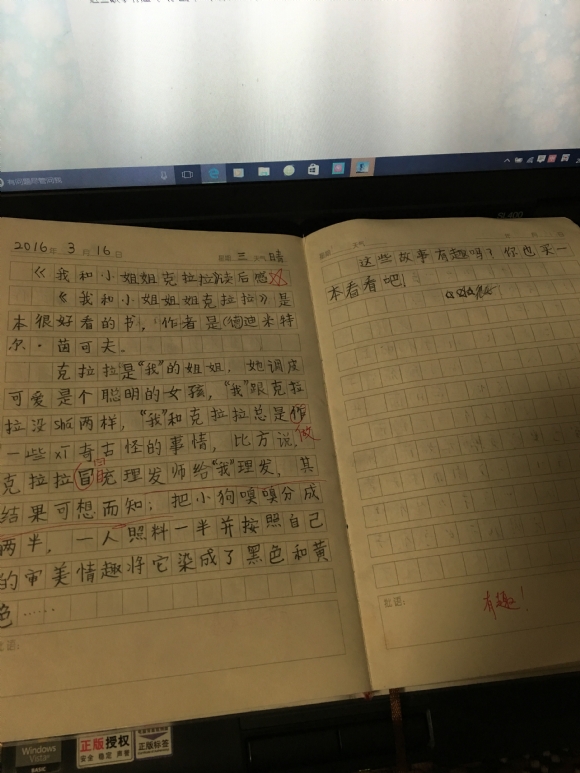 2016年 3月 16日 星期 三 天气 晴
《我和小姐姐克拉拉》读后感
《我和小姐姐姐克拉拉》是
本很好看的书，作者是（德迪米特
尔·茵可夫。
克拉拉是“我”的姐姐，她调皮
可爱是个聪明的女孩，“我”跟克拉
拉没shá两样，“我”和克拉拉总是作
做
一些xī奇古怪的事情，比方说，
克拉拉冒充理发师给“我”理发，其
结果可想而知；把小狗嗅嗅分成
两半，一人照料一半并按照自己
的审美情趣将它染成了黑色和黄
色……
批语：
天气
这些故事有趣吗？你也买一
本看看吧！
批语：
有趣！
Windows
Vista
BASIC
正版授权
安全 稳定 声誉
正版标签